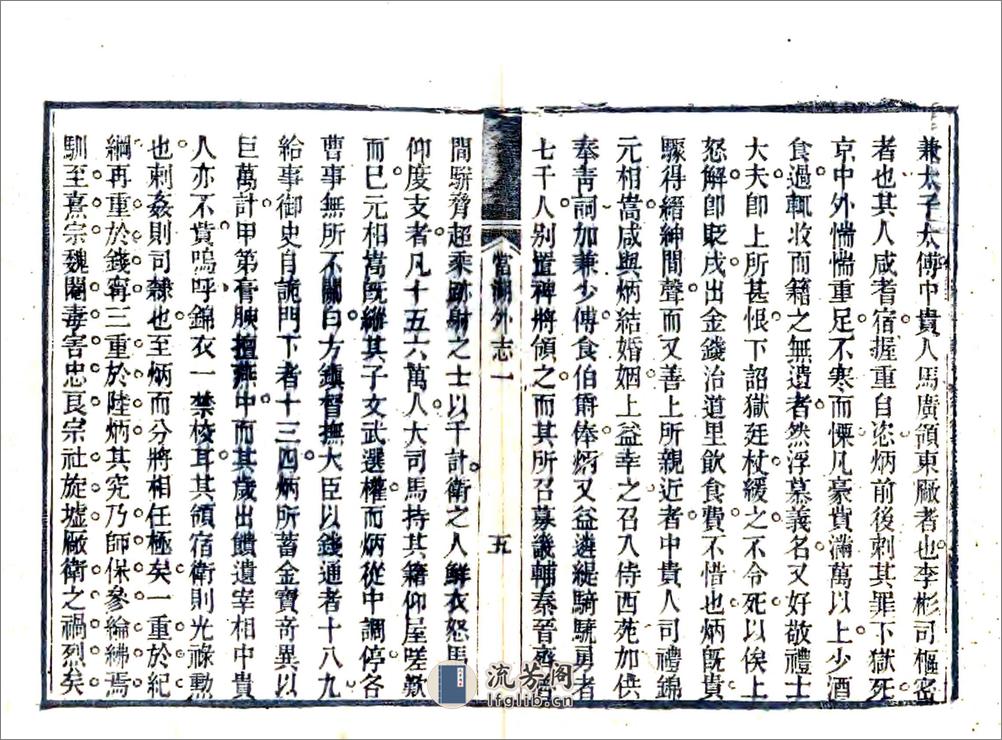 兼太子太傅中貴人馬廣領東廠者也李彬司樞密
者也其人咸耆宿握重自恣炳前後刺其罪下獄死
京中外惴惴重足不寒而慄凡豪貲滿萬以上少酒
食過輒收而籍之無遺者然浮慕義名又好敬禮士
大夫卽上所甚恨下詔獄廷杖緩之不令死以俟上
怒解卽貶戍出金錢治道里飲食費不惜也炳旣貴
驟得縉紳間聲而又善上所親近者中貴人司禮錦
元相嵩咸與炳結婚姻上益幸之召入侍西苑加供
奉靑詞加兼少傅食伯爵俸炳又益遴緹騎驍勇者
七千人别置裨將領之而其所召募畿輔秦晉齊魯
當湖外志一
五
間騈脅超乘跡射之士以千計衛之人鮮衣怒馬
仰度支者凡十五六萬人大司馬持其籍仰屋嗟歎
而已元相嵩旣縱其子文武選權而炳從中調停各
曹事無所不關白方鎮督撫大臣以錢通者十八九
給事御史自詭門下者十三四炳所蓄金寶奇異以
巨萬計甲第膏腴擅燕中而其歲出饋遺宰相中貴
人亦不貲嗚呼錦衣一禁校耳其領宿衛則光祿勲
也刺姦則司隸也至炳而分將相任極矣一重於紀
綱再重於錢寧三重於陸炳其究乃師保參綸綍焉
馴至熹宗魏閹毒害忠良宗社旋墟厰衛之禍烈矣
流芳閣
lfglib.cn